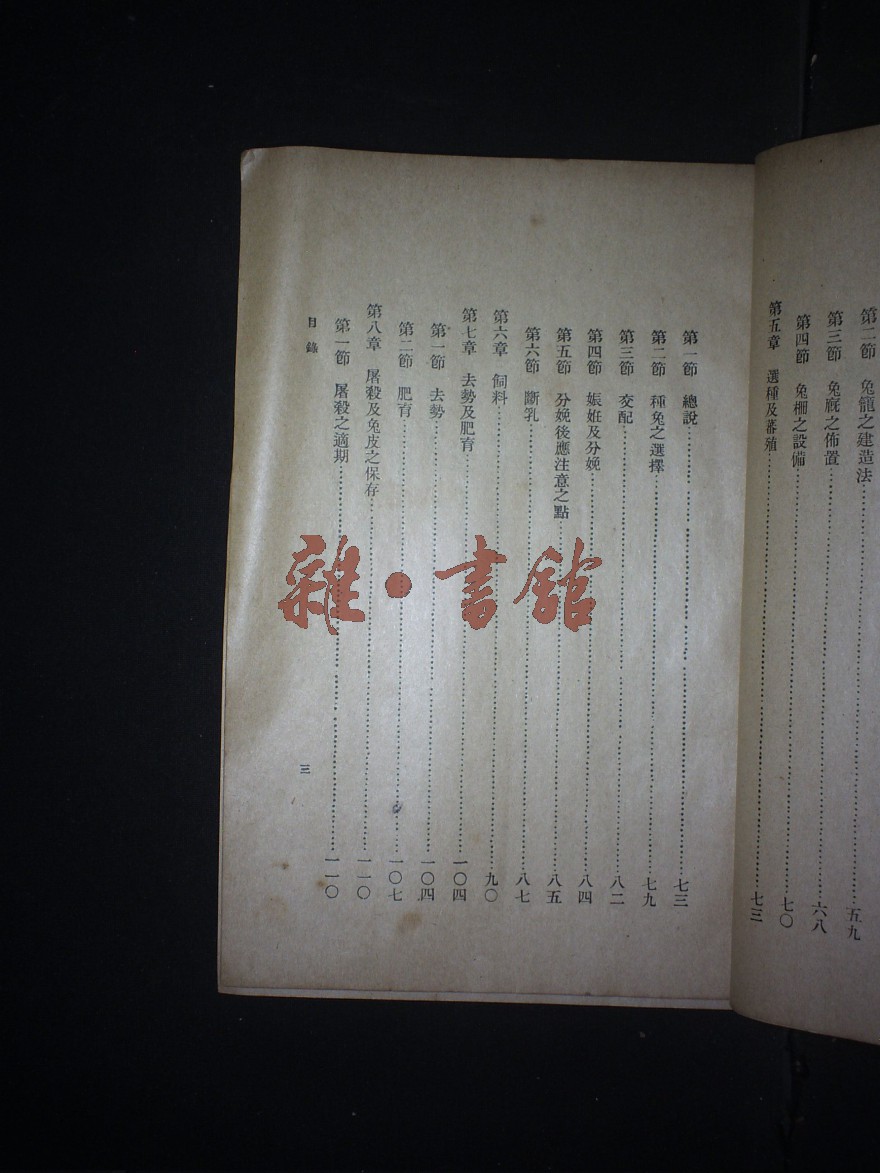 第二節 兔籠之建造法……五九
第三節 兔舍之佈置……六八
第四節 兔柵之設備……七〇
第五章 選種及蕃殖……七三
第一節 總說……七三
第二節 種兔之選擇……七九
第三節 交配……八二
第四節 娠姙及分娩……八四
第五節 分娩後應注意之點……八五
第六節 斷乳……八七
第六章 飼料……九〇
第七章 去勢及肥育……一〇四
第一節 去勢……一〇四
第二節 肥育……一〇七
第八章 屠殺及兔皮之保存……一一〇
第一節 屠殺之適期……一一〇
目錄
三
雜·書館